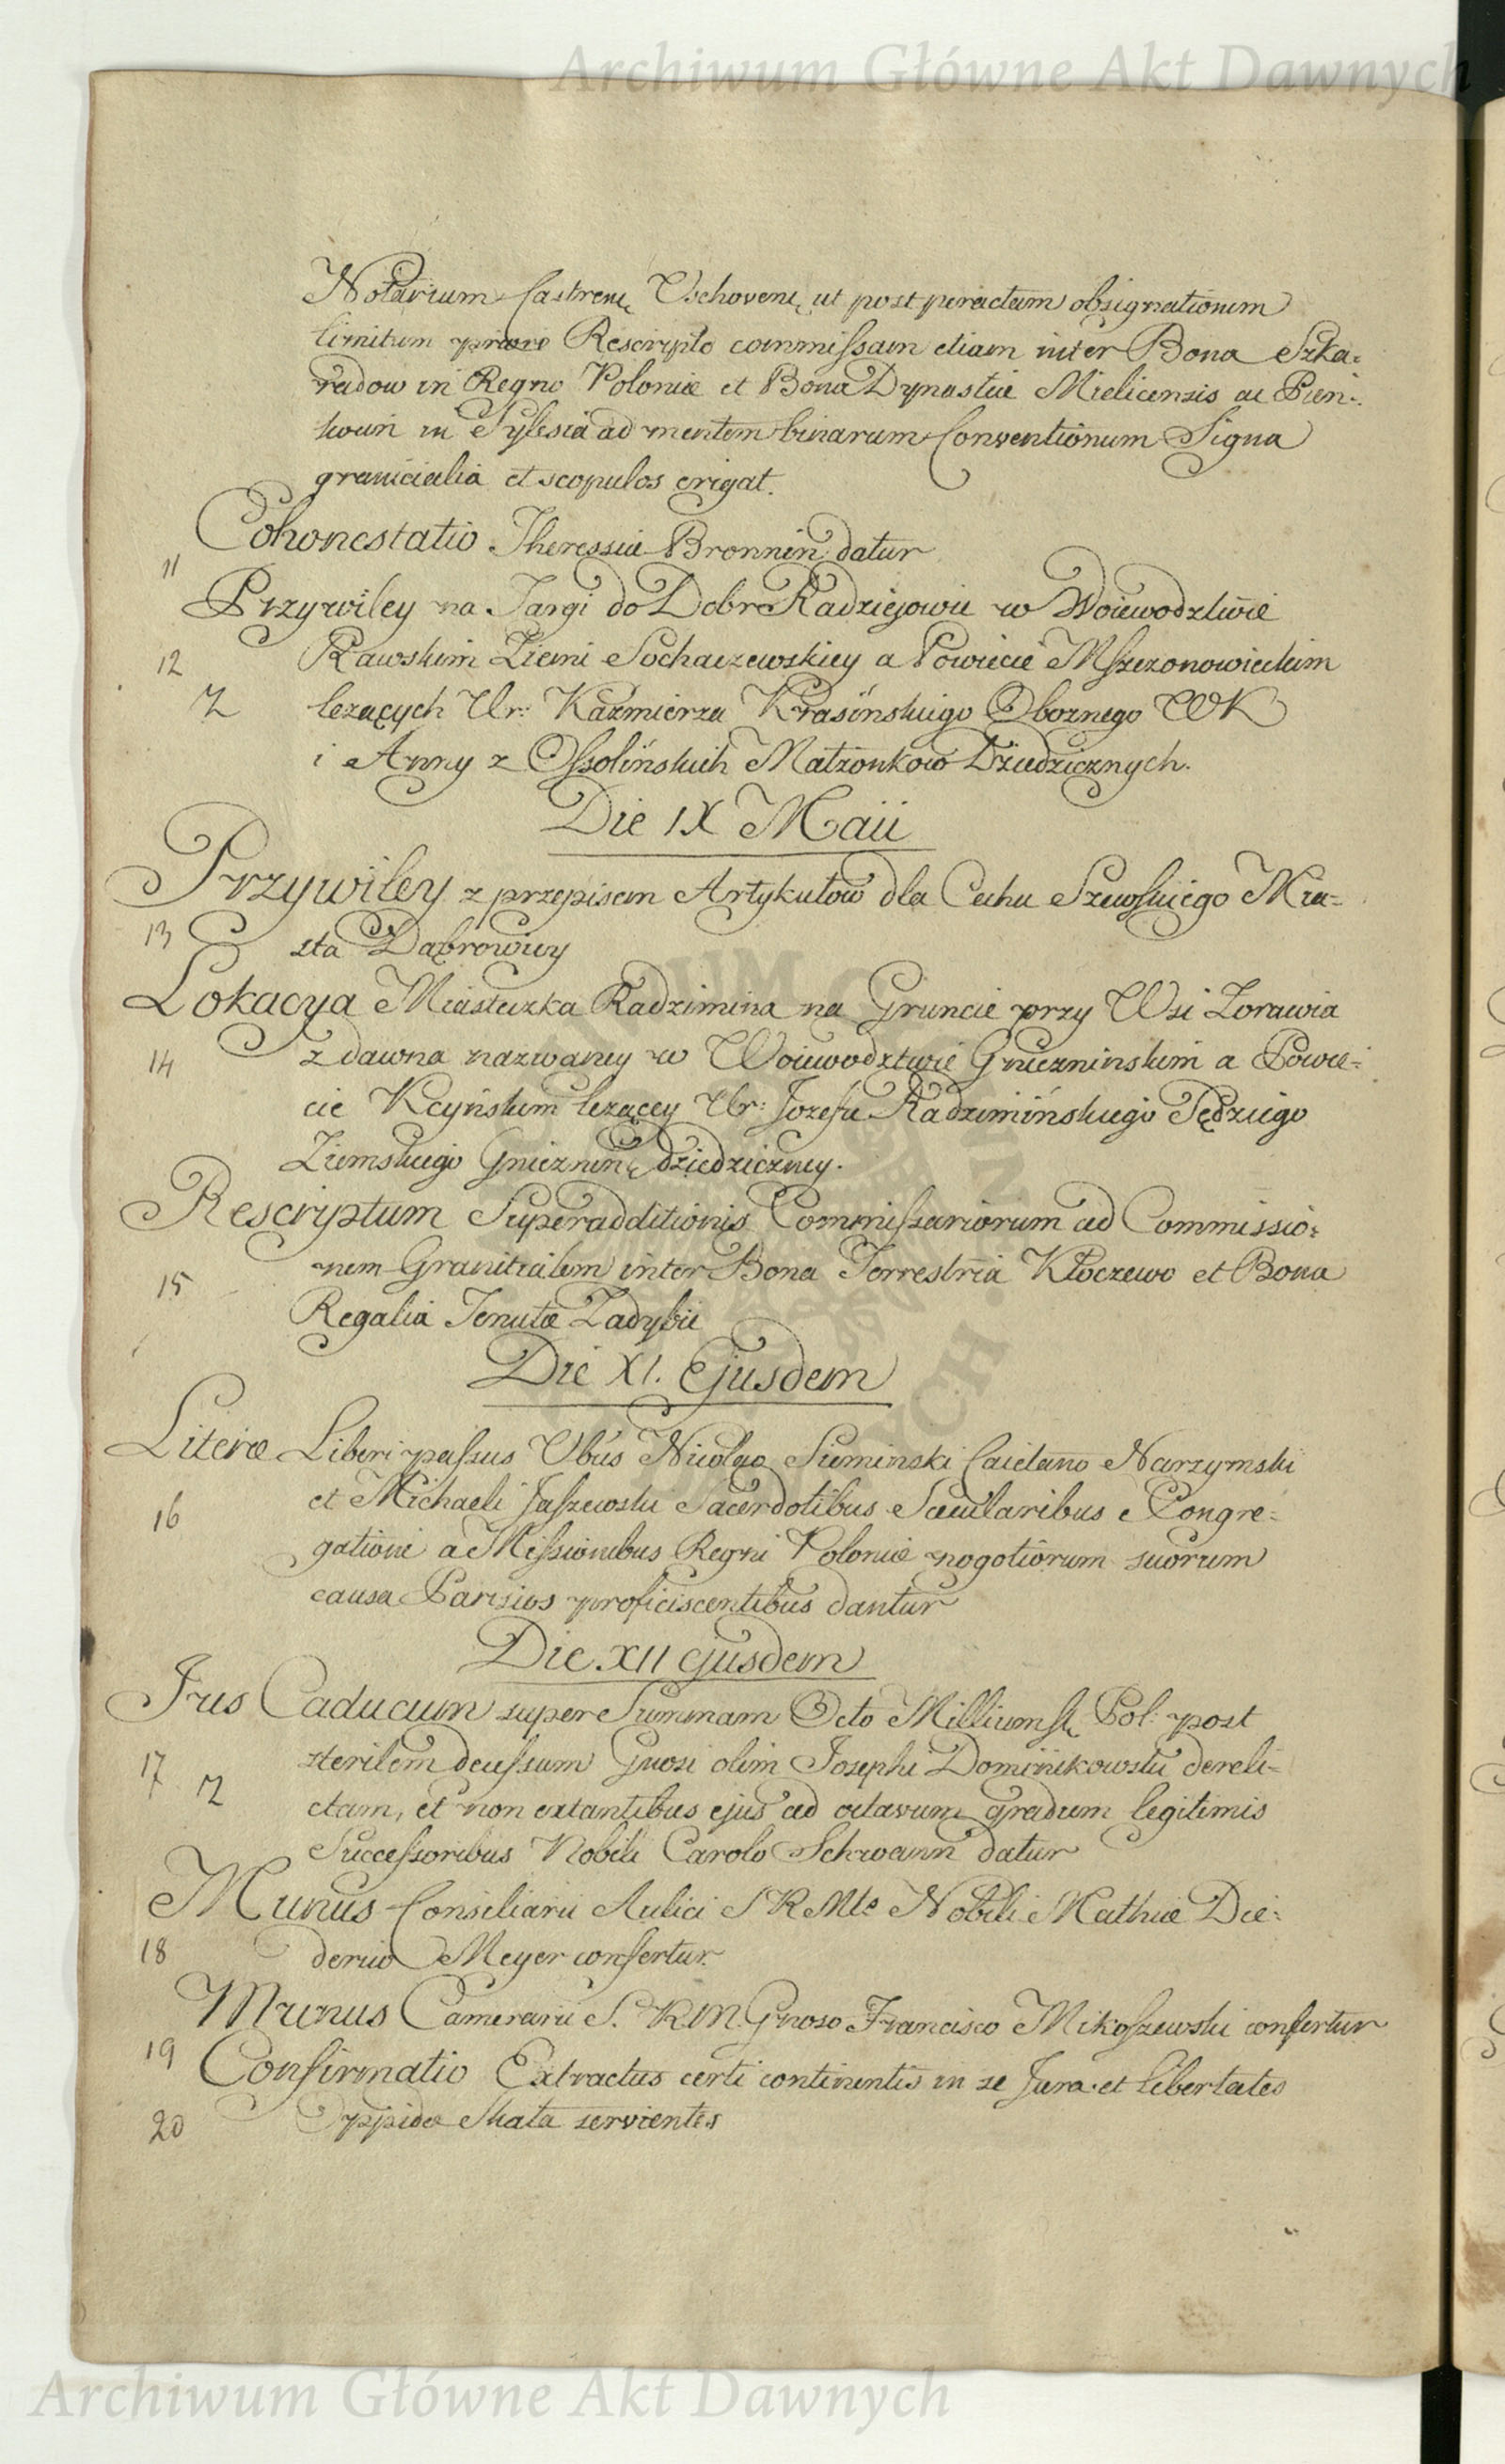 Archiwum Główne Akt Dawnych
Notarium Castrenę Vschovenę ut post peractam obsignationem
limitum priore Rescripto commissam etiam inter Bona Szka=
radow in Regno Poloniæ et Bona Dynastiæ Mielicensis ac Pien=
kwin in Sylesia ad mentem binarum Conventionum Signa
granicialia et scopulos erigat.
Cohonestatio Theressiæ Bronnin datur
11
Przywiley na Targi do Dobr Radziejowic w Woiewodztwie
12 Rawskim Ziemi Sochaczewskiey a Powiecie Mszczonowieckim
leżących Ur: Kaźmierza Krasińskiego Oboznego WK
i Anny z Ossolińskich Małżonkow Dziedzicznych.
Die IX Maii
Przywiley z przepisem Artykułow dla Cechu Szewskiego Mia=
13 sta Dąbrowicy
Lokacya Miasteczka Radzimina na Gruncie przy Wsi Zorawia
14 z dawna nazwaney w Woiewodztwie Gnieznińskim a Powie=
cie Kcyńskim leżącey Ur: Jozefa Radzimińskiego Sędziego
Ziemskiego Gniezninę dziedziczney.
Rescryptum Superadditionis Commissariorum ad Commissio=
15 nem Granitialem inter Bona Terrestria Kłoczewo et Bona
Regalia Tenutæ Zadybie
Die XI. Ejusdem
Literæ Liberi passus Vbus Nicolao Sieminski Caietano Narzymski
16 et Michaeli Jaszewski Sacerdotibus Sæcularibus e Congre=
gatione a Missionibus Regni Poloniæ nogotiorum suorum
causa Parisios proficiscentibus dantur
Die XII ejusdem
Jus Caducum super Summam Octo Millium fl Pol: post
17 sterilem decessum Gnosi olim Josephi Dominikowski dereli=
ctam, et non extantibus ejus ad octavum gradum legitimis
Successoribus Nobili Carolo Schwann datur
Munus Consiliarii Aulici S R Mtis Nobili Mathiæ Die=
18 derico Meyer confertur.
Munus Camerarii S. R.M. Gnoso Francisco Mikoszewski confertur
19
Confirmatio Extractus certi continentis in se Jura et libertates
20 Oppido Skała servientes
Archiwum Główne Akt Dawnych